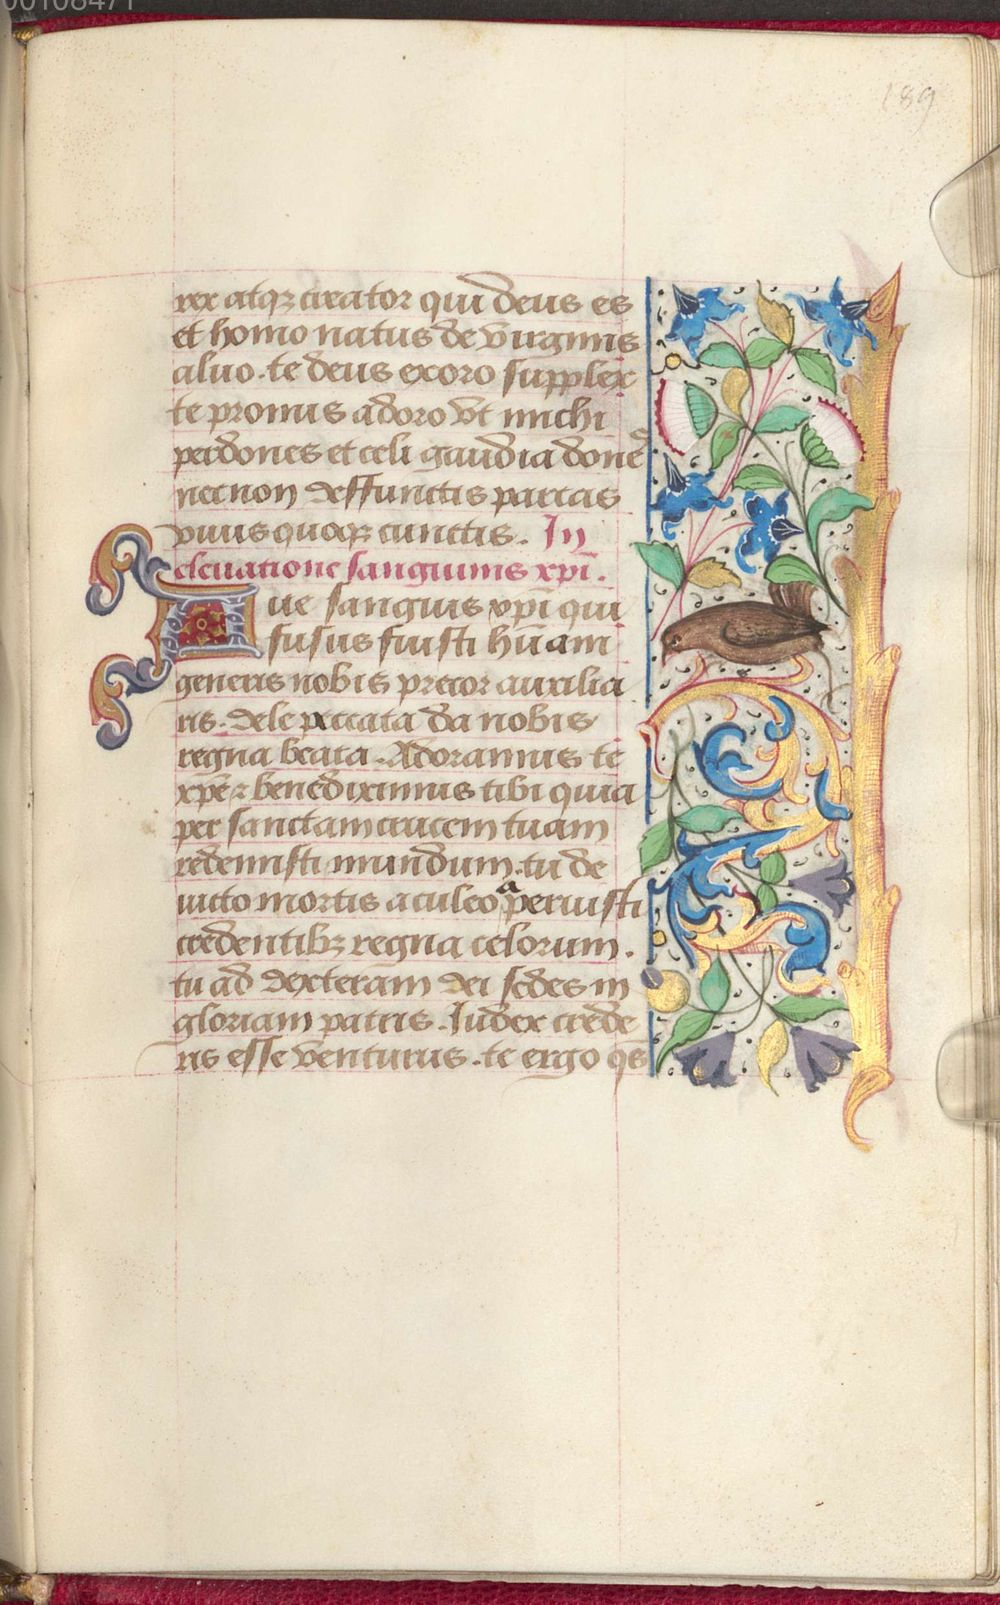 00108471
189
rex atqꝫ creator qui deus es
et homo natus de virginis
aluo. te deus exoro supplex
te pronus adoro vt michi
perdones et celi gaudia dones
necnon deffunctis parcas
viuis quoqꝫ cunctis. In
eleuatione sanguinis xp̄i.
Aue sanguis xp̄i qui
fusus fuisti hūani
generis nobis precor auxilia
ris. dele peccata da nobis
regna beata. Adoramus te
xp̄e ⁊ benediximus tibi quia
per sanctam crucem tuam
redemisti mundum. tu de
uicto mortis aculeo aperuisti
credentibꝫ regna celorum.
tu ad dexteram dei sedes in
gloriam patris. Iudex crede
ris esse venturus. te ergo qs